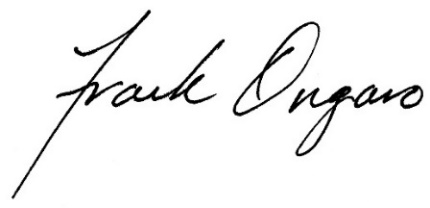 Frank Ongaro